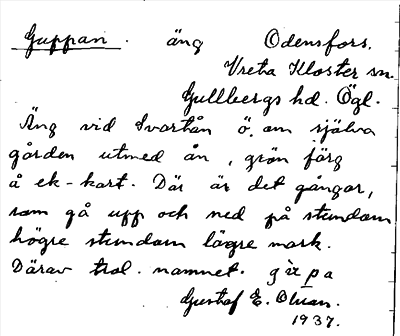 Guppan. äng Odensfors.
Vreta Kloster sn.
Gullbergs hd. Ögl.
Äng vid Svartån ö. om själva
gården utmed ån, grön färg
å ek-kart. Där är det gångar,
som gå upp och ned på stundom
högre stundom lägre mark.
Därav trol. namnet.
Gustaf E. Olsson.
1937.